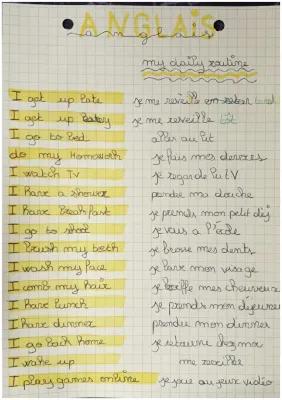 ANGLAIS
anglais
my daily routine
I get up late je me reveille en retard
I get up je me reveille tôt
I go to bed aller au lit
do my homework je fais mes devoires
I watch TV je regarde la TV
I have a shower prendre ma douche
I have Breakfast je prends mon petit déj
I go to shool je vais a l'école
I brush my teeth je brosse mes dents
I wash my face je lave mon visage
I comb my hair je coiffe mes cheveux
I have lunch je prends mon déjeuner
I have dinner prendre mon dinner
I go back home je retourne chez moi
I wake up me reveille
I play games online je joue au jeux vidéo